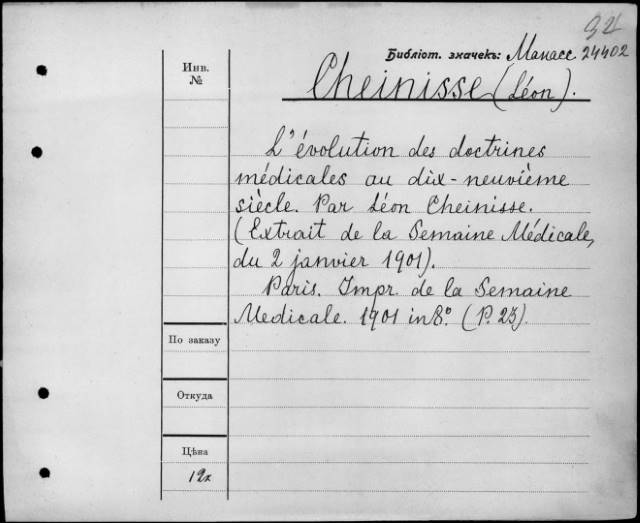 32
Библіот. значекъ: Манасс 24402
Инв.
№
Cheinisse (Léon).
L'évolution des doctrines
médicales au dix-neuvième
siècle. Par Léon Cheinisse.
(Extrait de la Semaine Médicale,
du 2 janvier 1901).
Paris. Impr. de la Semaine
Medicale. 1901 in 8º. (P. 23).
По заказу
Откуда
Цѣна